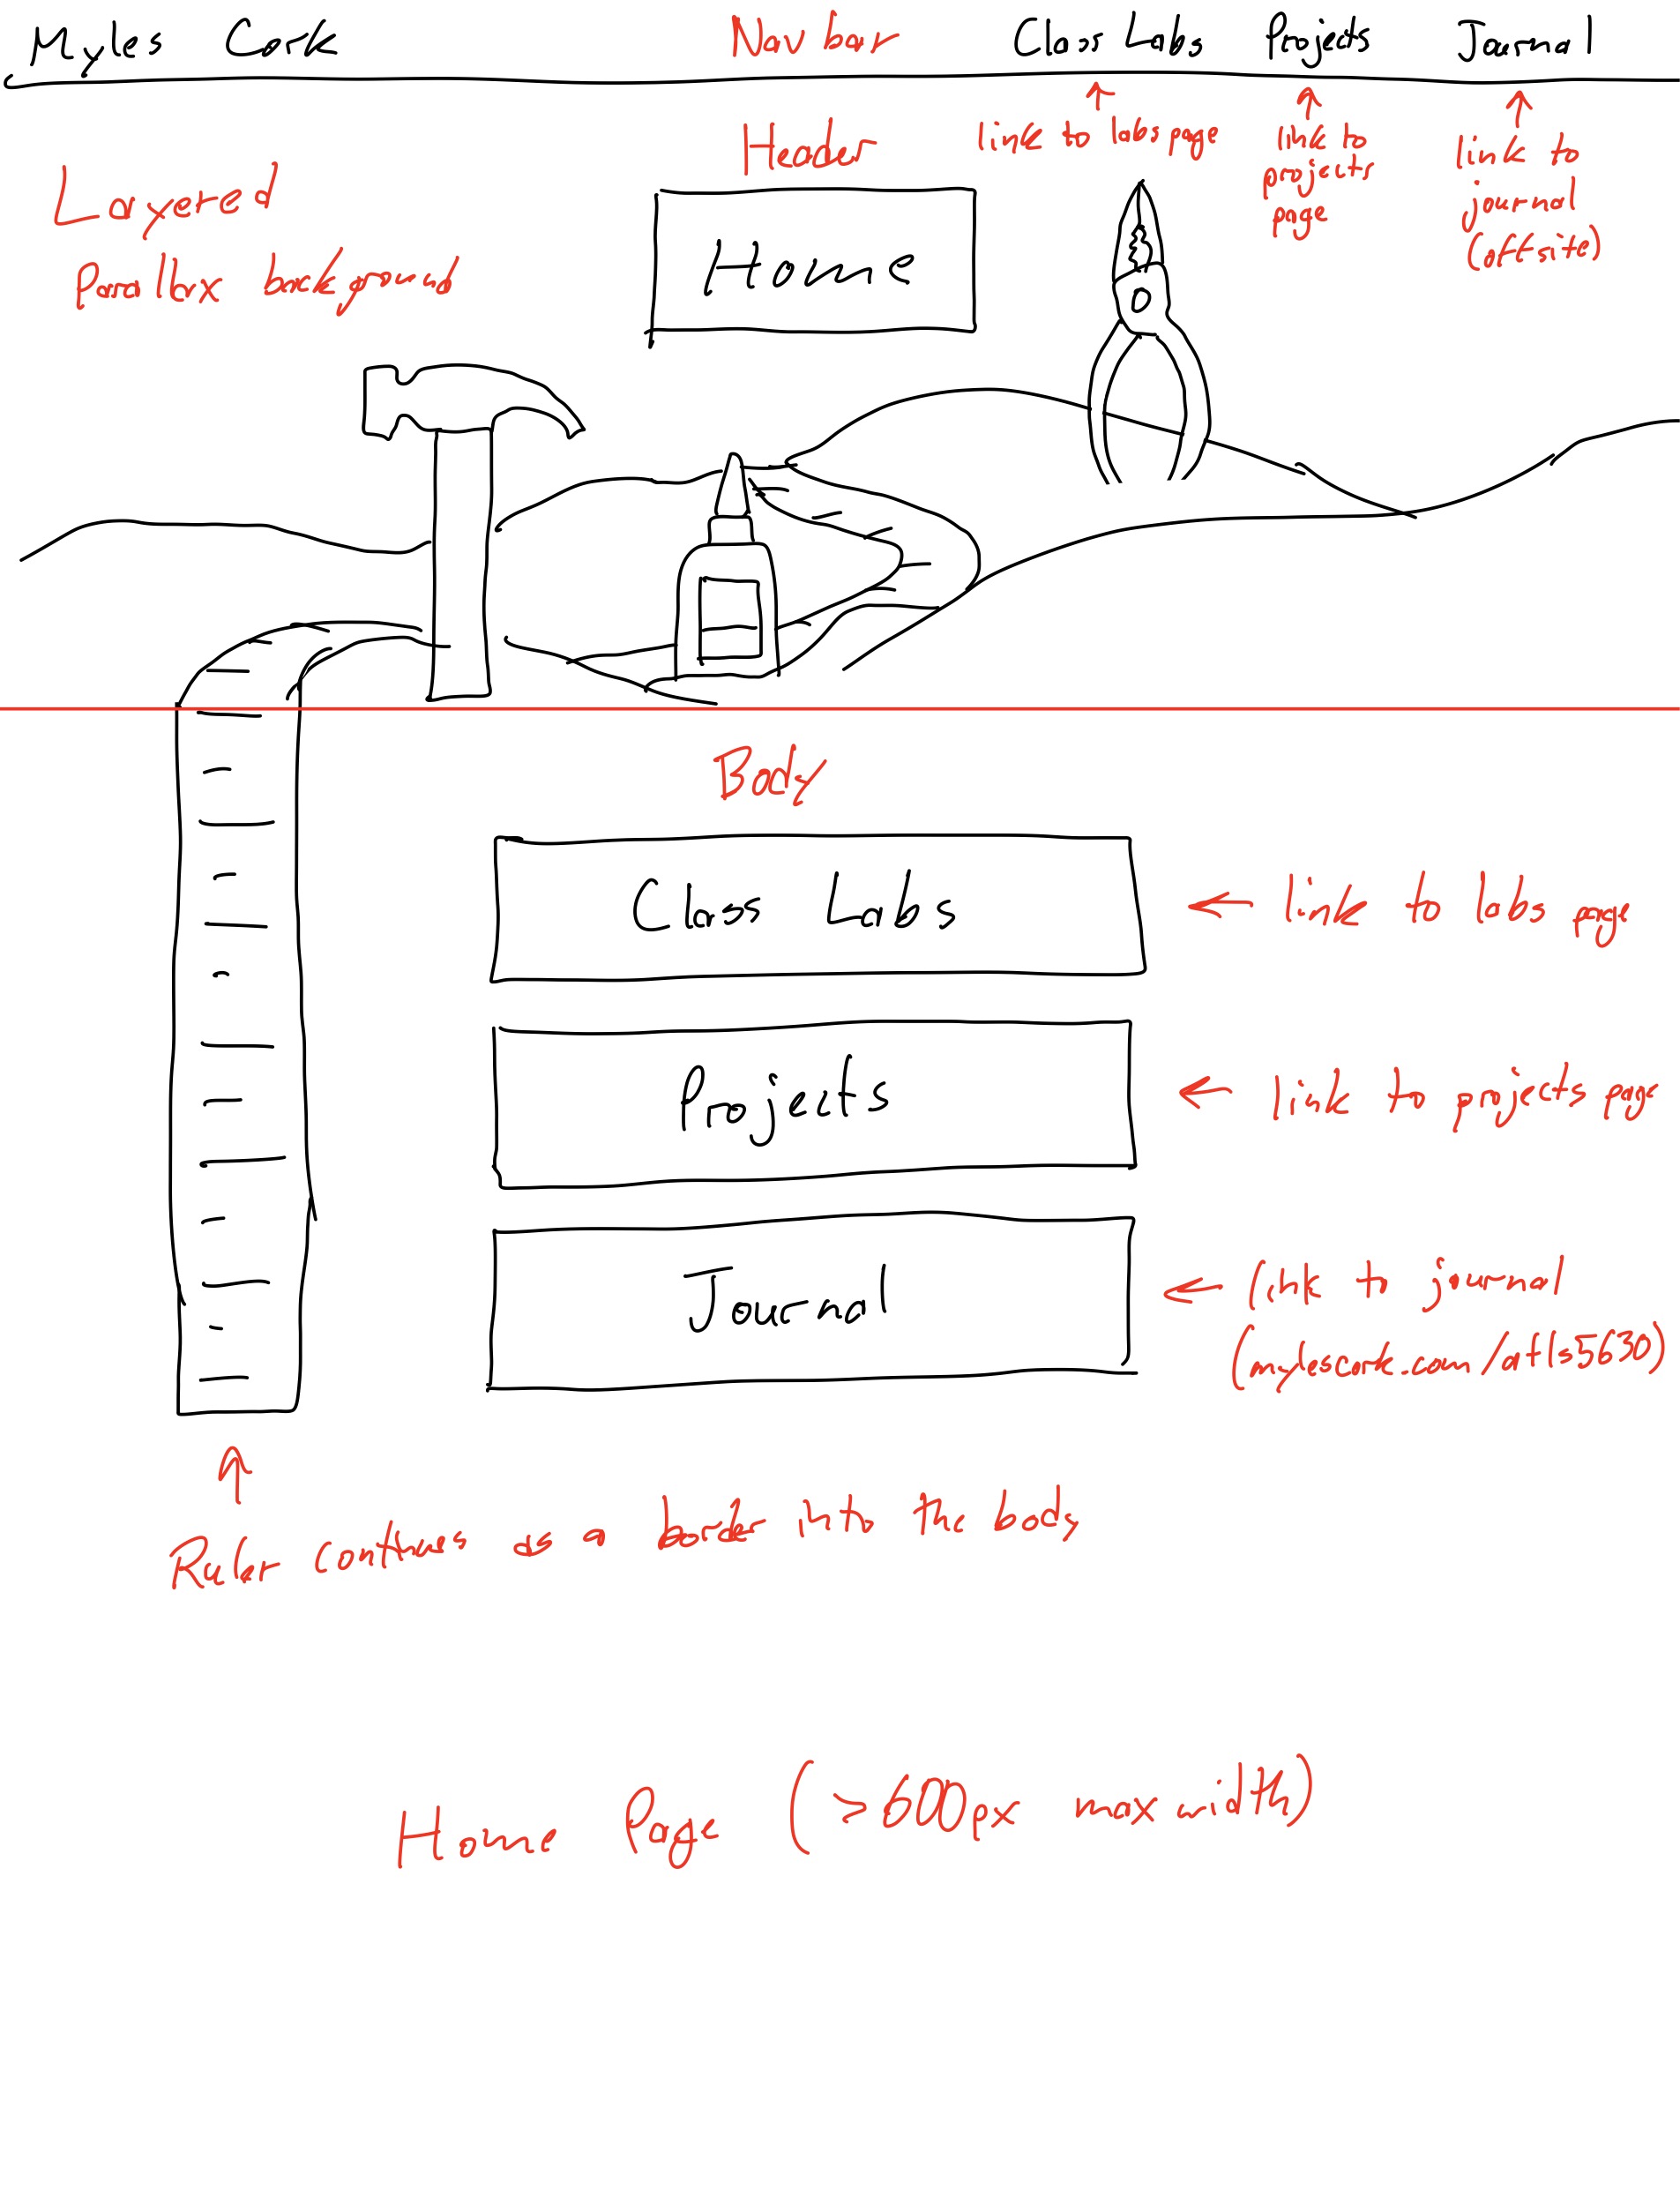 Myles Cork Nav bar Class Labs Projects Journal
Header
link to labs page
link to
projects
page
link to
journal
(offsite)
Layered
Parallax background
Home
Body
Class Labs
link to labs page
Projects
link to projects page
Journal
link to journal
(mylescork.com/atls5630)
Ruler continues as a border into the body
Home Page (>600px max width)